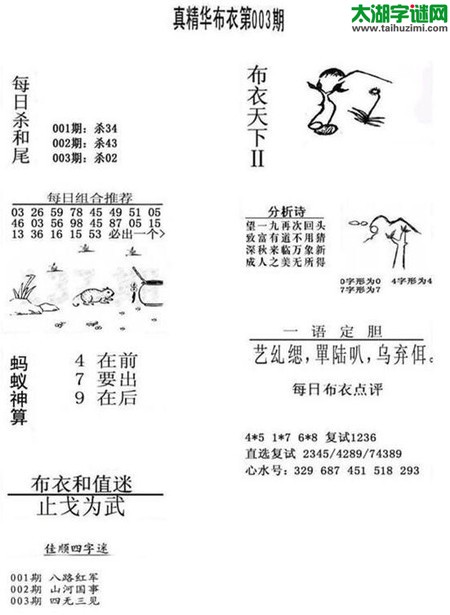 真精华布衣第003期
太湖字谜网
www.taihuzimi.com
每日杀和尾
001期：杀34
002期：杀43
003期：杀02
布衣天下II
每日组合推荐
03 26 59 78 45 49 51 05
46 03 56 98 45 87 05 15
13 36 16 15 53 必出一个>
分析诗
望一九再次回头
致富有道不用猜
深秋来临万象新
成人之美无所得
0字形为0 4字形为4
7字形为7
蚂蚁神算
4 在前
7 要出
9 在后
一语定胆
艺乣缌，單陆叭，乌弃佴。
每日布衣点评
4*5 1*7 6*8 复试1236
直选复试 2345/4289/74389
心水号：329 687 451 518 293
布衣和值迷
止戈为武
佳顺四字迷
001期 八路红军
002期 山河国事
003期 四无三见